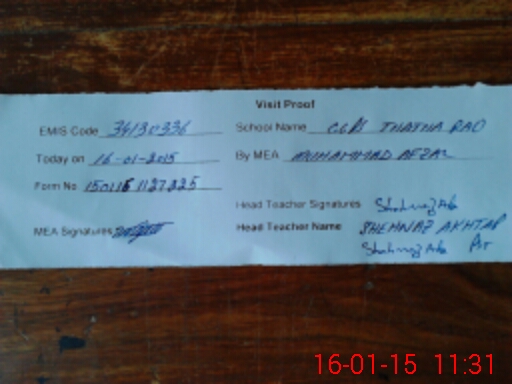 Visit Proof
EMIS Code 34130336 School Name CGPS THATHA RAO
Today on 16-01-2015 By MEA MUHAMMAD AFZAL
Form No. 150116 1127225
Head Teacher Signatures
MEA Signatures Head Teacher Name SHEHNAZ AKHTAR
PST
16-01-15 11:31